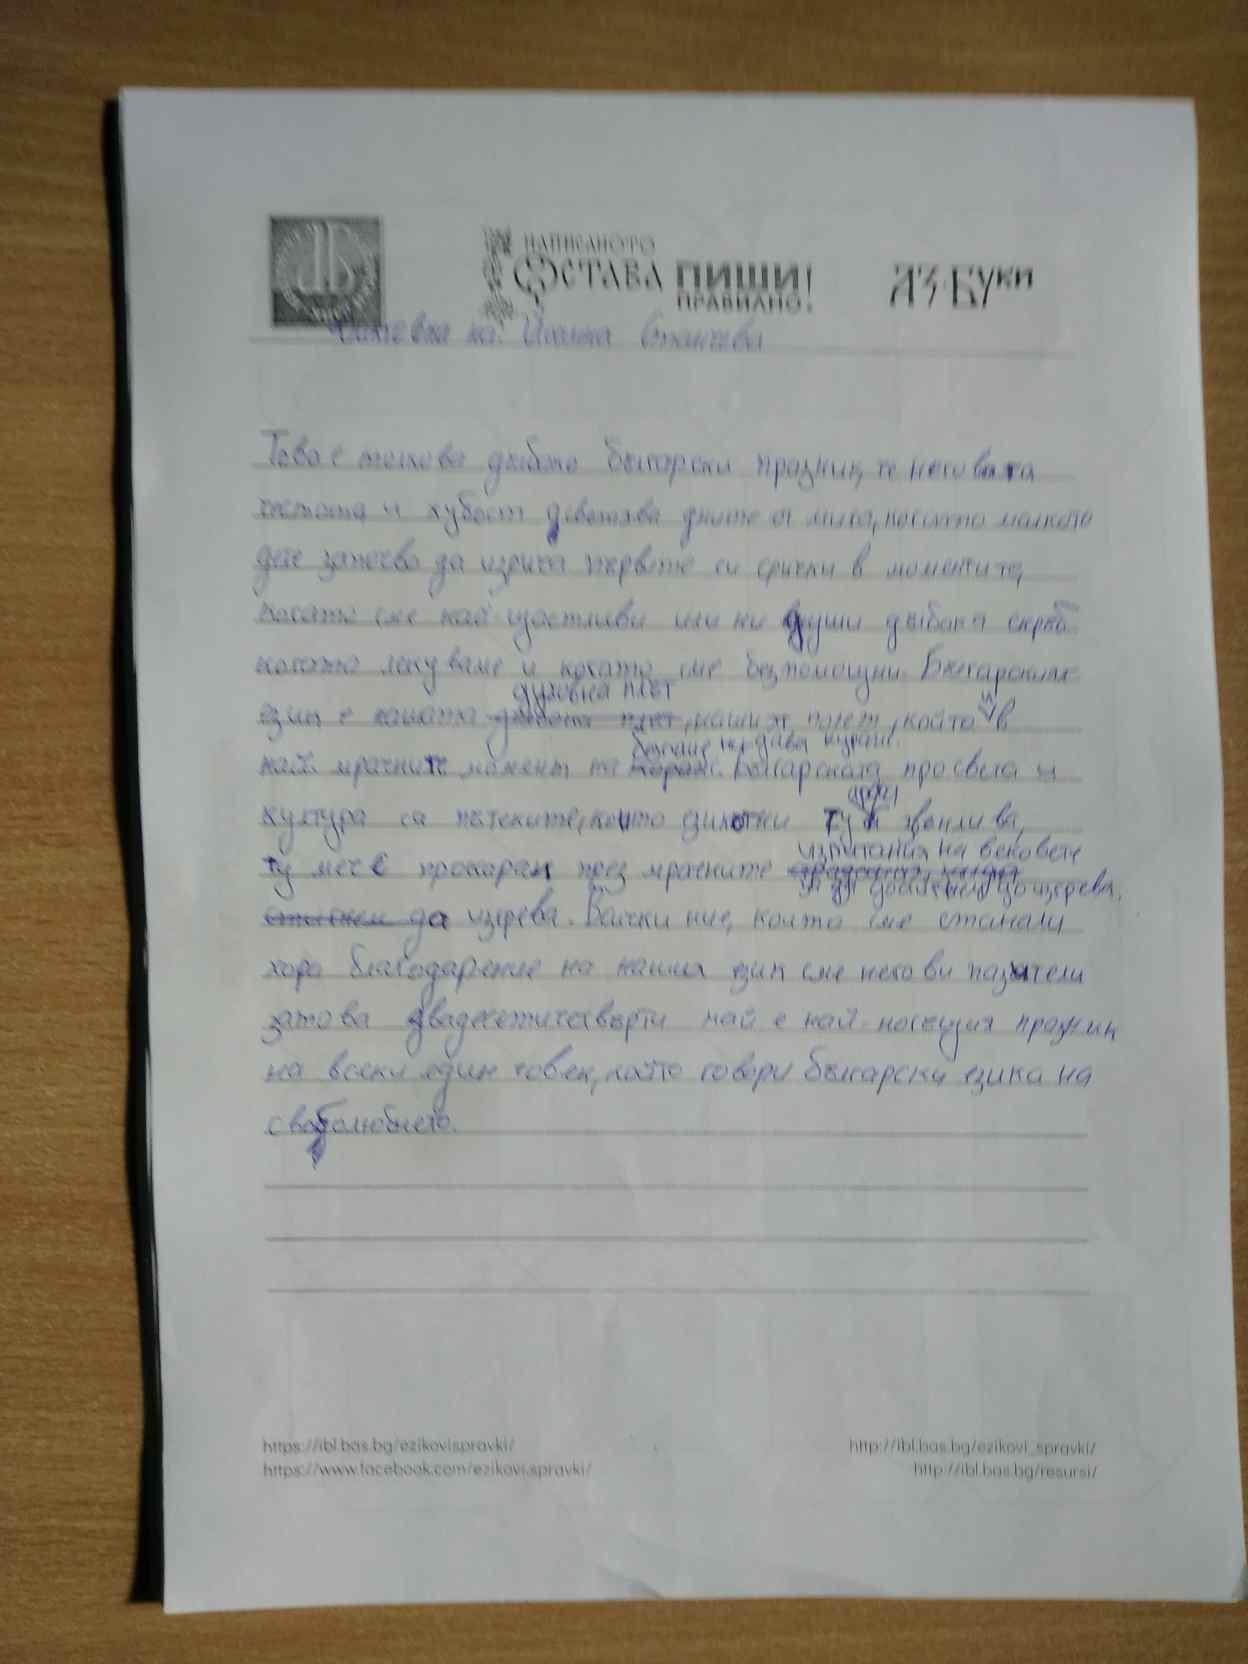 НАПИСАНОТО
ОСТАВА ПИШИ!
ПРАВИЛНО!
АЗ·БУКИ
Диктовка на: Йоанна Станчева
Това е толкова дълбоко български празник, че неговата
чистота и хубост д светлява дните от мига, когато малкото
дете започва да изрича първите си срички в моментите,
когато сме най-щастливи или ни души дълбока скръб
когато ликуваме и когато сме безпомощни. Българският
духовна плът
език е нашата дълбока плът, нашият полет, който и в
безспир ни дава кураж.
най- мрачните момент не кораж. Българската просвета и
култура са пътеките, които езикът ни ту звънлива,
ту меч е прокарал през мрачните
изпитания на вековете
за да достигнем до церева.
стигнем да изгрева. Всички ние, които сме станали
хора благодарение на нашия език сме негови пазители
затова двадесетичетвърти май е най-носещия празник
на всеки един човек, който говори български езика на
свободолюбието.
https://ibl.bas.bg/ezikovispravki/
https://www.facebook.com/ezikovispravki/
http://ibl.bas.bg/ezikovi_spravki/
http://ibl.bas.bg/resursi/